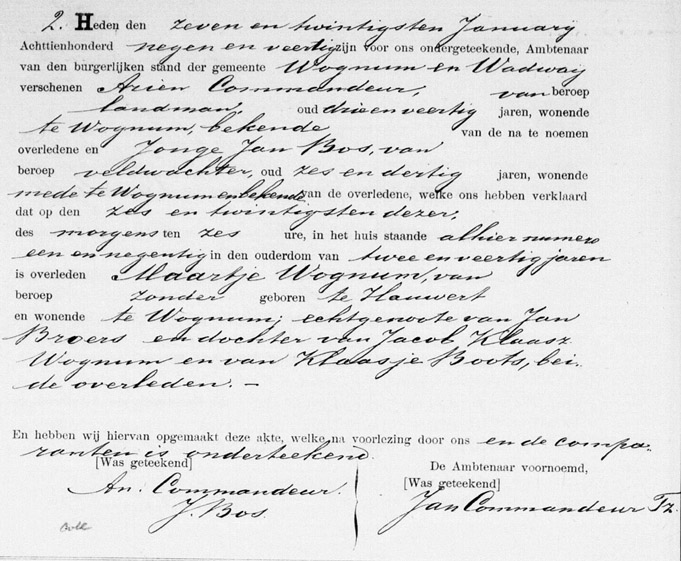 2. Heden den zeven en twintigsten January
Achttienhonderd negen en veertig zijn voor ons ondergeteekende, Ambtenaar
van den burgerlijken stand der gemeente Wognum en Wadway
verschenen Arien Commandeur, van beroep
landman, oud drie en veertig jaren, wonende
te Wognum, bekende van de na te noemen
overledene en Jonge Jan Bos, van
beroep veldwachter, oud zes en dertig jaren, wonende
mede te Wognum en bekende van de overledene, welke ons hebben verklaard
dat op den zes en twintigsten dezer,
des morgens ten zes ure, in het huis staande alhier numero
een en negentig in den ouderdom van twee en veertig jaren
is overleden Maartje Wognum, van
beroep zonder geboren te Hauwert
en wonende te Wognum; echtgenoote van Jan
Broers en dochter van Jacob Klaasz
Wognum en van Klaasje Boots, bei-
de overleden. —
En hebben wij hiervan opgemaakt deze akte, welke na voorlezing door ons en de compa-
ranten is onderteekend.
[Was geteekend]
An. Commandeur.
J. Bos.
De Ambtenaar voornoemd,
[Was geteekend]
Jan Commandeur Tz.